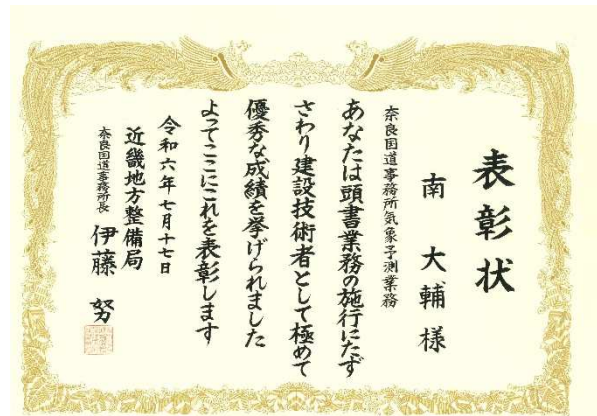 表彰状
南 大輔 様
奈良国道事務所気象予測業務
あなたは頭書業務の施行にたず
さわり建設技術者として極めて
優秀な成績を挙げられました
よってここにこれを表彰します
令和六年七月十七日
近畿地方整備局
奈良国道事務所長 伊藤 努